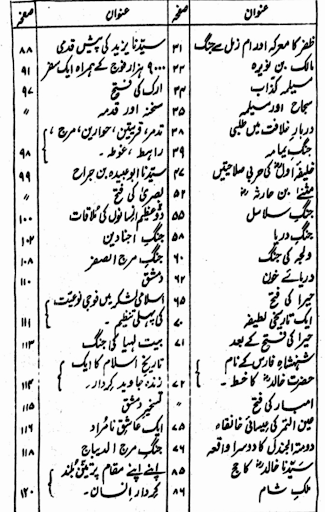 عنوان صفحہ
ظفر کا معرکہ اور ام زمل سے جنگ ۳۱
مالک بن نویرہ ۳۲
مسیلمہ کذاب ۳۴
سجاح اور مسیلمہ ۳۵
دربارِ خلافت میں طلبی ۳۸
جنگِ یمامہ ۳۹
خلیفۂ اول کی حربی صلاحیتیں ۴۷
مثنیٰ بن حارثہ ۵۲
جنگِ سلاسل ۵۵
جنگِ دریا ۵۸
ولجہ کی جنگ ۶۰
دریائے خون ۶۲
حیرا کی فتح ۶۵
ایک تاریخی لطیفہ ۷۰
حیرا کی فتح کے بعد ۷۱
شہنشاہِ فارس کے نام
حضرت خالدؓ کا خط۔ ۷۲
امبار کی فتح 〃
عین التمر کی عیسائی خانقاہ ۷۵
دومۃ الجندل کا دوسرا واقعہ ۷۶
سیّدنا خالدؓ کا حج ۸۵
ملک شام ۸۶
عنوان صفحہ
سیّدنا یزید کی پیش قدمی ۸۸
۹۰۰۰ ہزار فوج کے ہمراہ ایک سفر ۹۱
ارک کی فتح ۹۷
سخنہ اور قدمہ 〃
تدمر، قریتین، حوارین، مرج،
راہط، غوطہ۔ ۹۸
سیّدنا ابوعبیدہ بن جراح ۹۹
بصریٰ کی فتح 〃
دو عظیم انسانوں کی ملاقات ۱۰۰
جنگِ اجنادین ۱۰۲
جنگ مرج الصفر ۱۰۸
دمشق ۱۱۰
اسلامی لشکر میں فوجی نوعیت
کی پہلی تنظیم ۱۱۱
بیت لہیا کی جنگ ۱۱۳
تاریخِ اسلام کا ایک
زندہ جاوید کردار۔ ۱۱۴
تسخیرِ دمشق ۱۱۵
ایک عاشقِ نامُراد ۱۱۶
جنگ مرج الدیباج ۱۱۸
اپنے اپنے مقام پر تین بُلند
کردار انسان۔ ۱۲۰